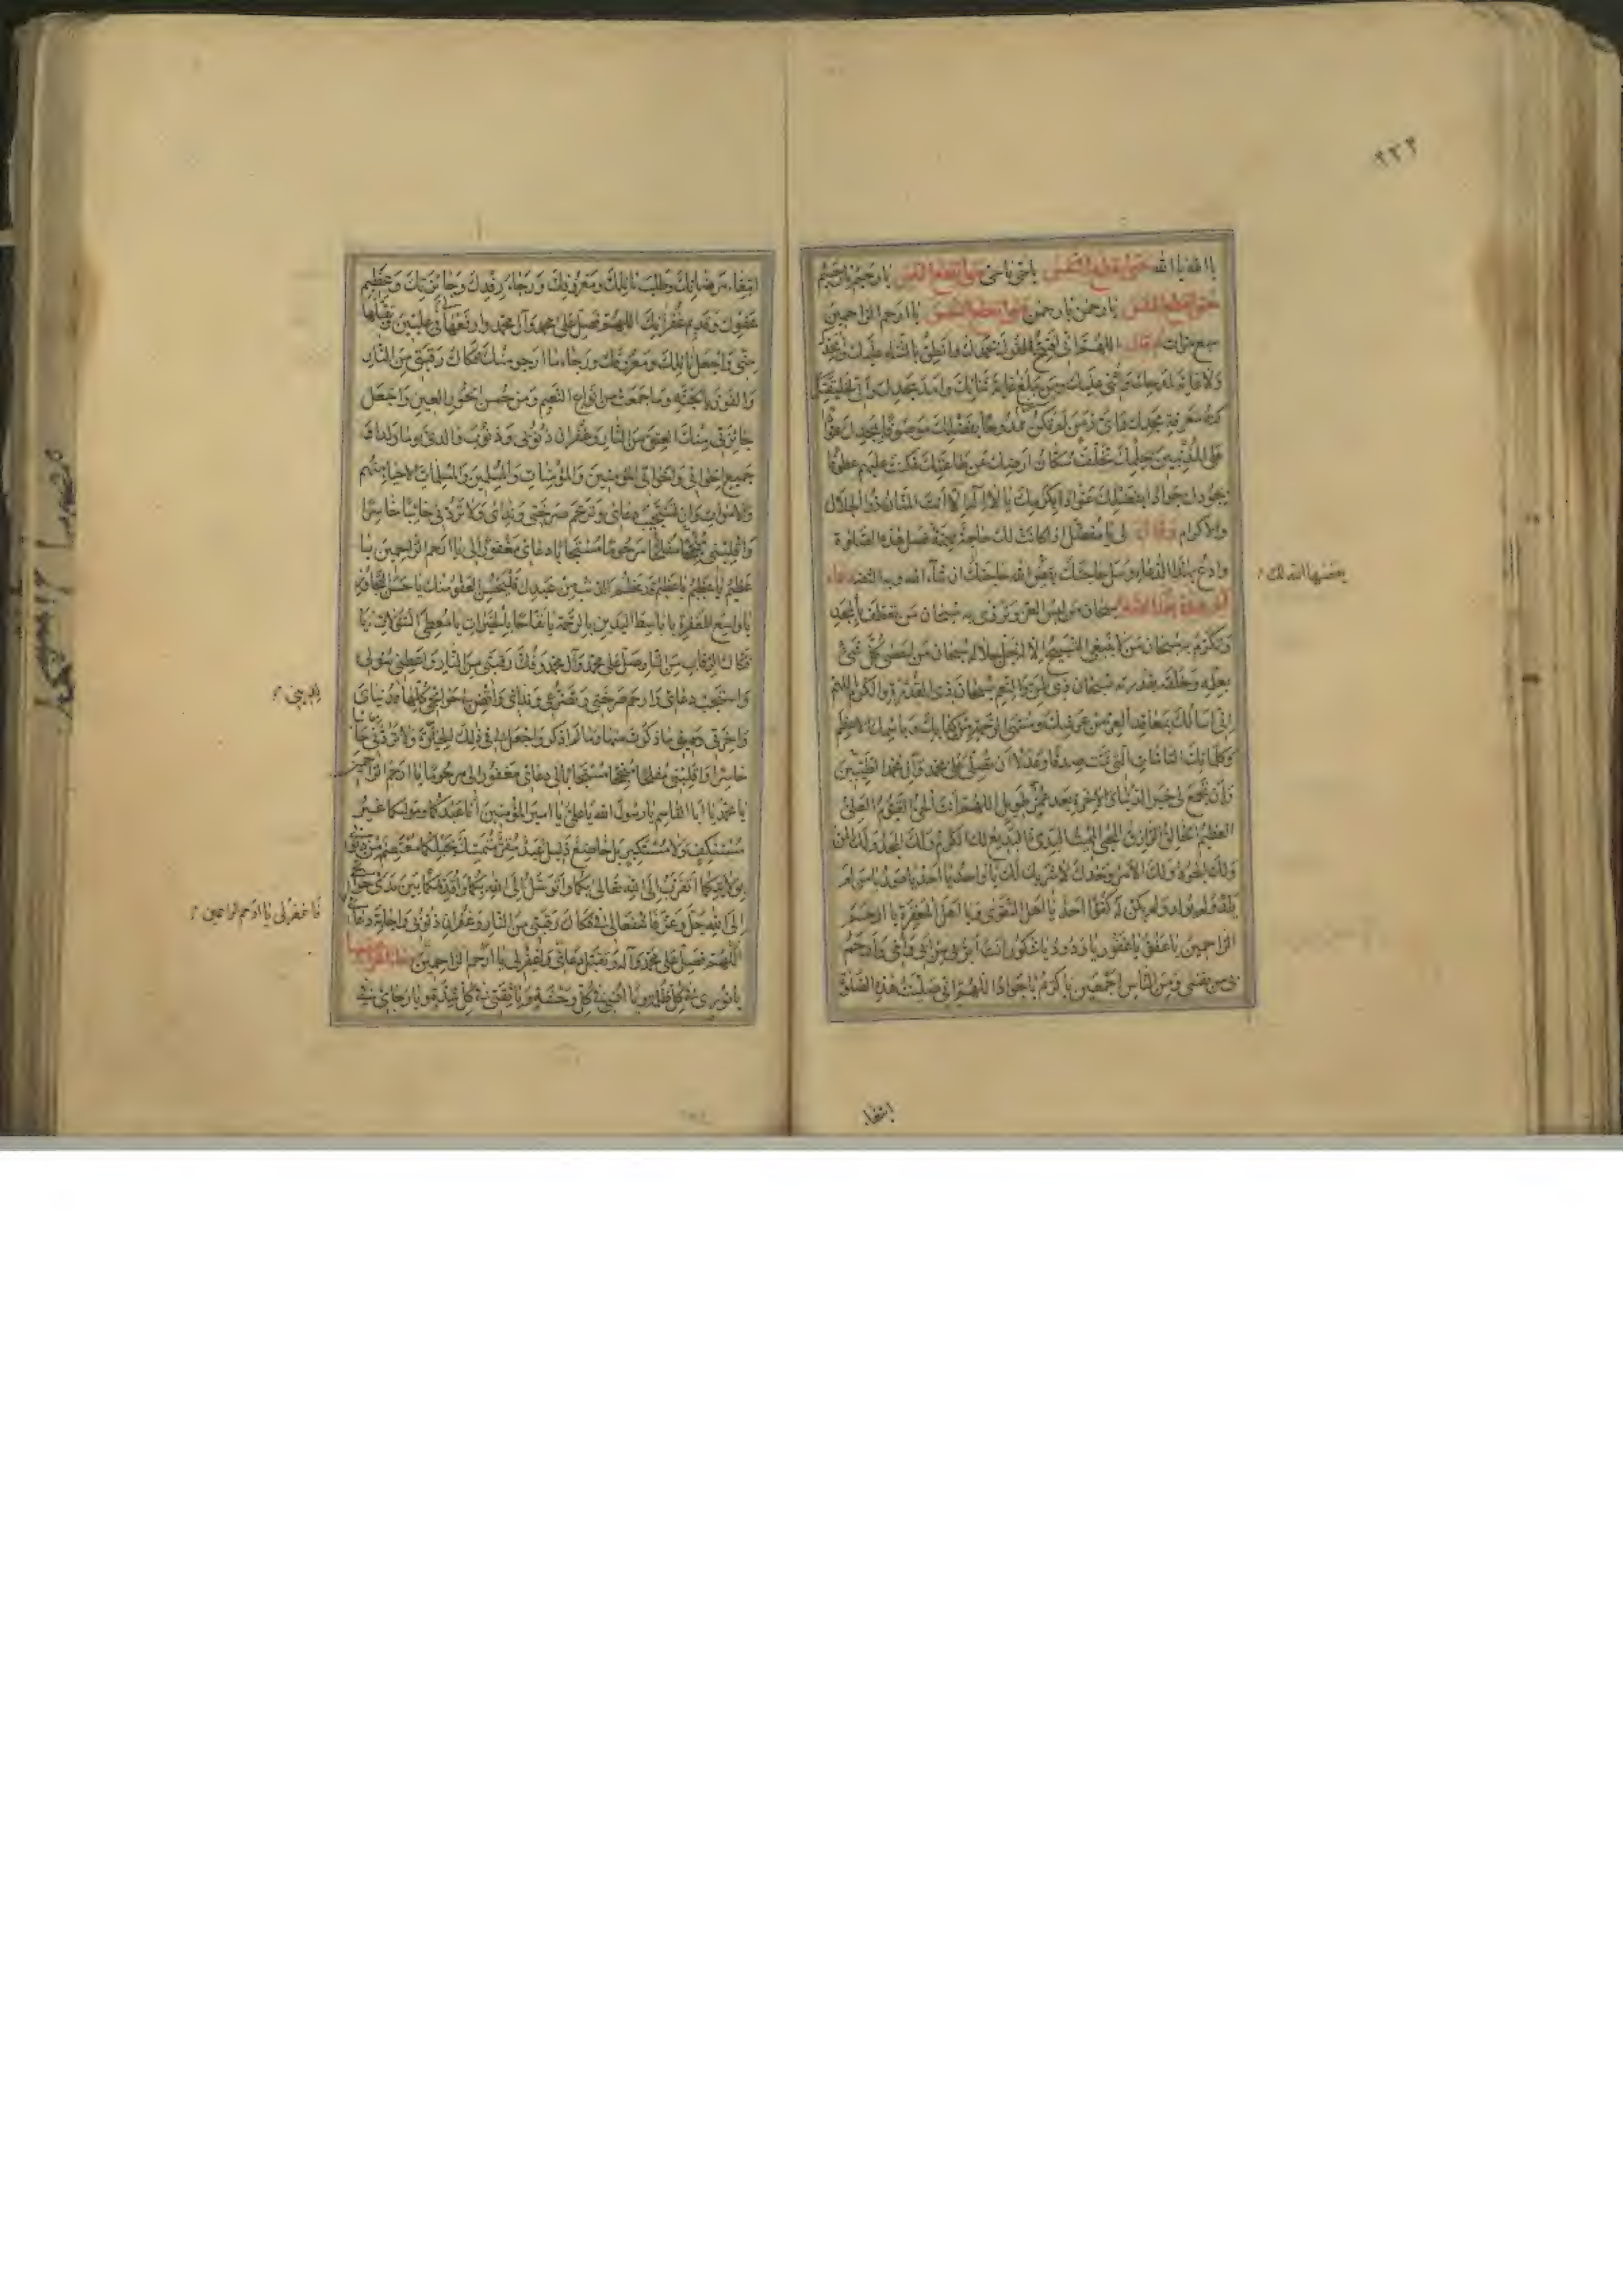 ٩٢٢
يا الله يا الله حتى ينقطع النفس يا حي يا حي حتى ينقطع النفس يا رحيم يا رحيم
حتى ينقطع النفس يا رحمن يا رحمن حتى ينقطع النفس يا ارحم الراحمين
سبع مرات ثم قال اللهم اني افتتح القول بحمدك وانطق بالثناء عليك وامجدك
ولا غاية لمدحك واثني عليك ومن يبلغ غاية ثنائك وامد مجدك واني لخليقتك
كنه معرفة مجدك واي زمن لم تكن ممدوحا بفضلك موصوفا بمجدك عوادا
على المذنبين بحلمك تخلف سكان ارضك عن طاعتك فكنت عليهم عطوفا
بجودك جوادا بفضلك عوادا بكرمك يا لا اله الا انت المنان ذو الجلال
والاكرام وقال لي يا مفضل اذا كانت لك حاجة مهمة فصل هذه الصلوة
وادع بهذا الدعاء وسل حاجتك يقض الله حاجتك ان شاء الله وبه الثقة دعاء
آخر عقيب هذه الصلوة سبحان من لبس العز وتردى به سبحان من تعطف بالمجد
وتكرم به سبحان من لا ينبغي التسبيح الا له جل جلاله سبحان من احصى كل شيء
بعلمه وخلقه بقدرته سبحان ذي المن والنعم سبحان ذي القدرة والكرم اللهم
اني اسألك بمعاقد العز من عرشك ومنتهى الرحمة من كتابك وباسمك الاعظم
وكلماتك التامات التي تمت صدقا وعدلا ان تصلي على محمد وآل محمد الطيبين
وان تجمع لي خير الدنيا والاخرة بعد عمر طويل اللهم انت الحي القيوم العلي
العظيم الخالق الرازق المحيي المميت المبدئ البديع لك الكرم ولك المجد ولك المن
ولك الجود ولك الامر وحدك لا شريك لك يا واحد يا احد يا صمد يا من لم
يلد ولم يولد ولم يكن له كفوا احد يا اهل التقوى ويا اهل المغفرة يا ارحم
الراحمين يا عفو يا غفور يا ودود يا شكور انت ابر بي من ابي وامي وارحم
بي من نفسي ومن الناس اجمعين يا كريم يا جواد اللهم اني صليت هذه الصلوة
ابتغاء
ابتغاء مرضاتك وطلب نائلك ومعروفك ورجاء رفدك وجائزتك وعظيم
عفوك وقديم غفرانك اللهم فصل على محمد وآل محمد وارفعها في عليين وتقبلها
مني واجعل نائلك ومعروفك ورجاء ما ارجو منك فكاك رقبتي من النار
والفوز بالجنة وما جمعت من انواع النعيم ومن حسن الحور العين واجعل
جائزتي منك العتق من النار وغفران ذنوبي وذنوب والدي وما ولدا و
جميع اخواني واخواتي المؤمنين والمؤمنات والمسلمين والمسلمات الاحياء منهم
والاموات وان تستجيب دعائي وترحم صرختي وندائي ولا تردني خائبا خاسرا
واقلبني منجحا مفلحا مرحوما مستجابا دعائي مغفورا لي يا ارحم الراحمين يا
عظيم يا عظيم يا عظيم قد عظم الذنب من عبدك فليحسن العفو منك يا حسن التجاوز
يا واسع المغفرة يا باسط اليدين بالرحمة يا نفاحا بالخيرات يا معطي السؤلات يا
فكاك الرقاب من النار صل على محمد وآل محمد وفك رقبتي من النار واعطني سؤلي
واستجب دعائي وارحم صرختي وتضرعي وندائي واقض لي حوائجي كلها لدنياي
واخرتي وديني ما ذكرت منها وما لم اذكر واجعل لي في ذلك الخيرة ولا تردني خائبا
خاسرا واقلبني مفلحا منجحا مستجابا لي دعائي مغفورا لي مرحوما يا ارحم الراحمين
يا محمد يا ابا القاسم يا رسول الله يا علي يا امير المؤمنين انا عبدكما ومولاكما غير
مستنكف ولا مستكبر بل خاضع ذليل عبد مقر متمسك بحبلكما معتصم من ذنوبي
بولايتكما اتقرب الى الله تعالى بكما واتوسل الى الله بكما واقدمكما بين يدي حوائجي
الى الله جل وعز فاشفعا لي في فكاك رقبتي من النار وغفران ذنوبي واجابة دعائي
اللهم فصل على محمد وآله وتقبل دعائي واغفر لي يا ارحم الراحمين
يا نوري في كل ظلمة ويا انسي في كل وحشة ويا ثقتي في كل شدة ويا رجائي في
فاغفر لي يا ارحم الراحمين